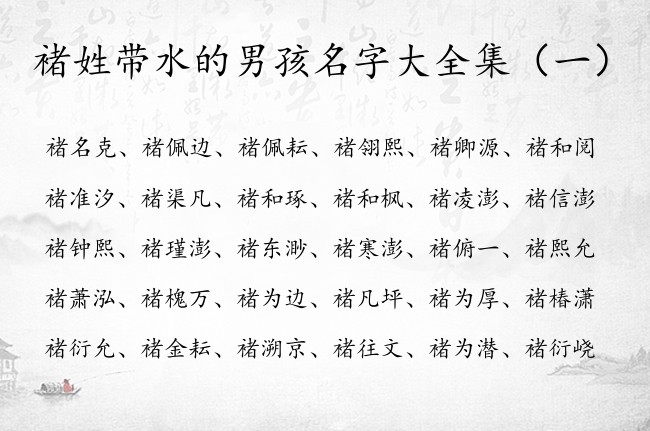 褚姓带水的男孩名字大全集（一）
褚名克、褚佩边、褚佩耘、褚翎熙、褚卿源、褚和阅
褚准汐、褚渠凡、褚和琢、褚和枫、褚凌澎、褚信澎
褚钟熙、褚瑾澎、褚东渺、褚寒澎、褚俯一、褚熙允
褚萧泓、褚槐万、褚为边、褚凡坪、褚为厚、褚椿潇
褚衍允、褚金耘、褚溯京、褚往文、褚为潜、褚衍峣